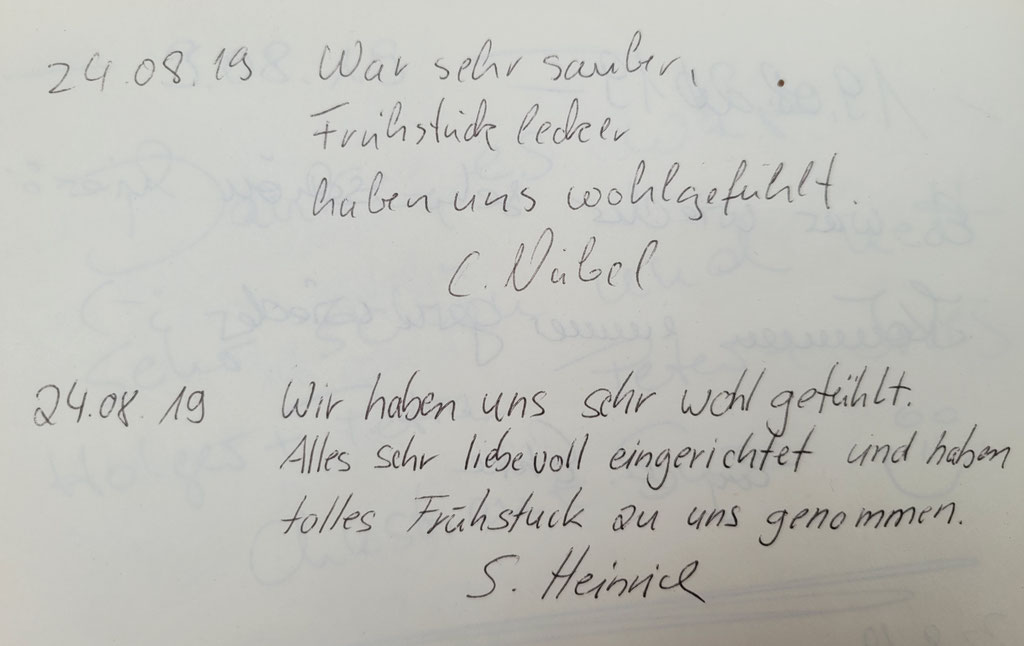 24.08.19 War sehr sauber,
Frühstück lecker
haben uns wohlgefühlt.
C. Nübel
24.08.19 Wir haben uns sehr wohl gefühlt.
Alles sehr liebevoll eingerichtet und haben
tolles Frühstück zu uns genommen.
S. Heinrich